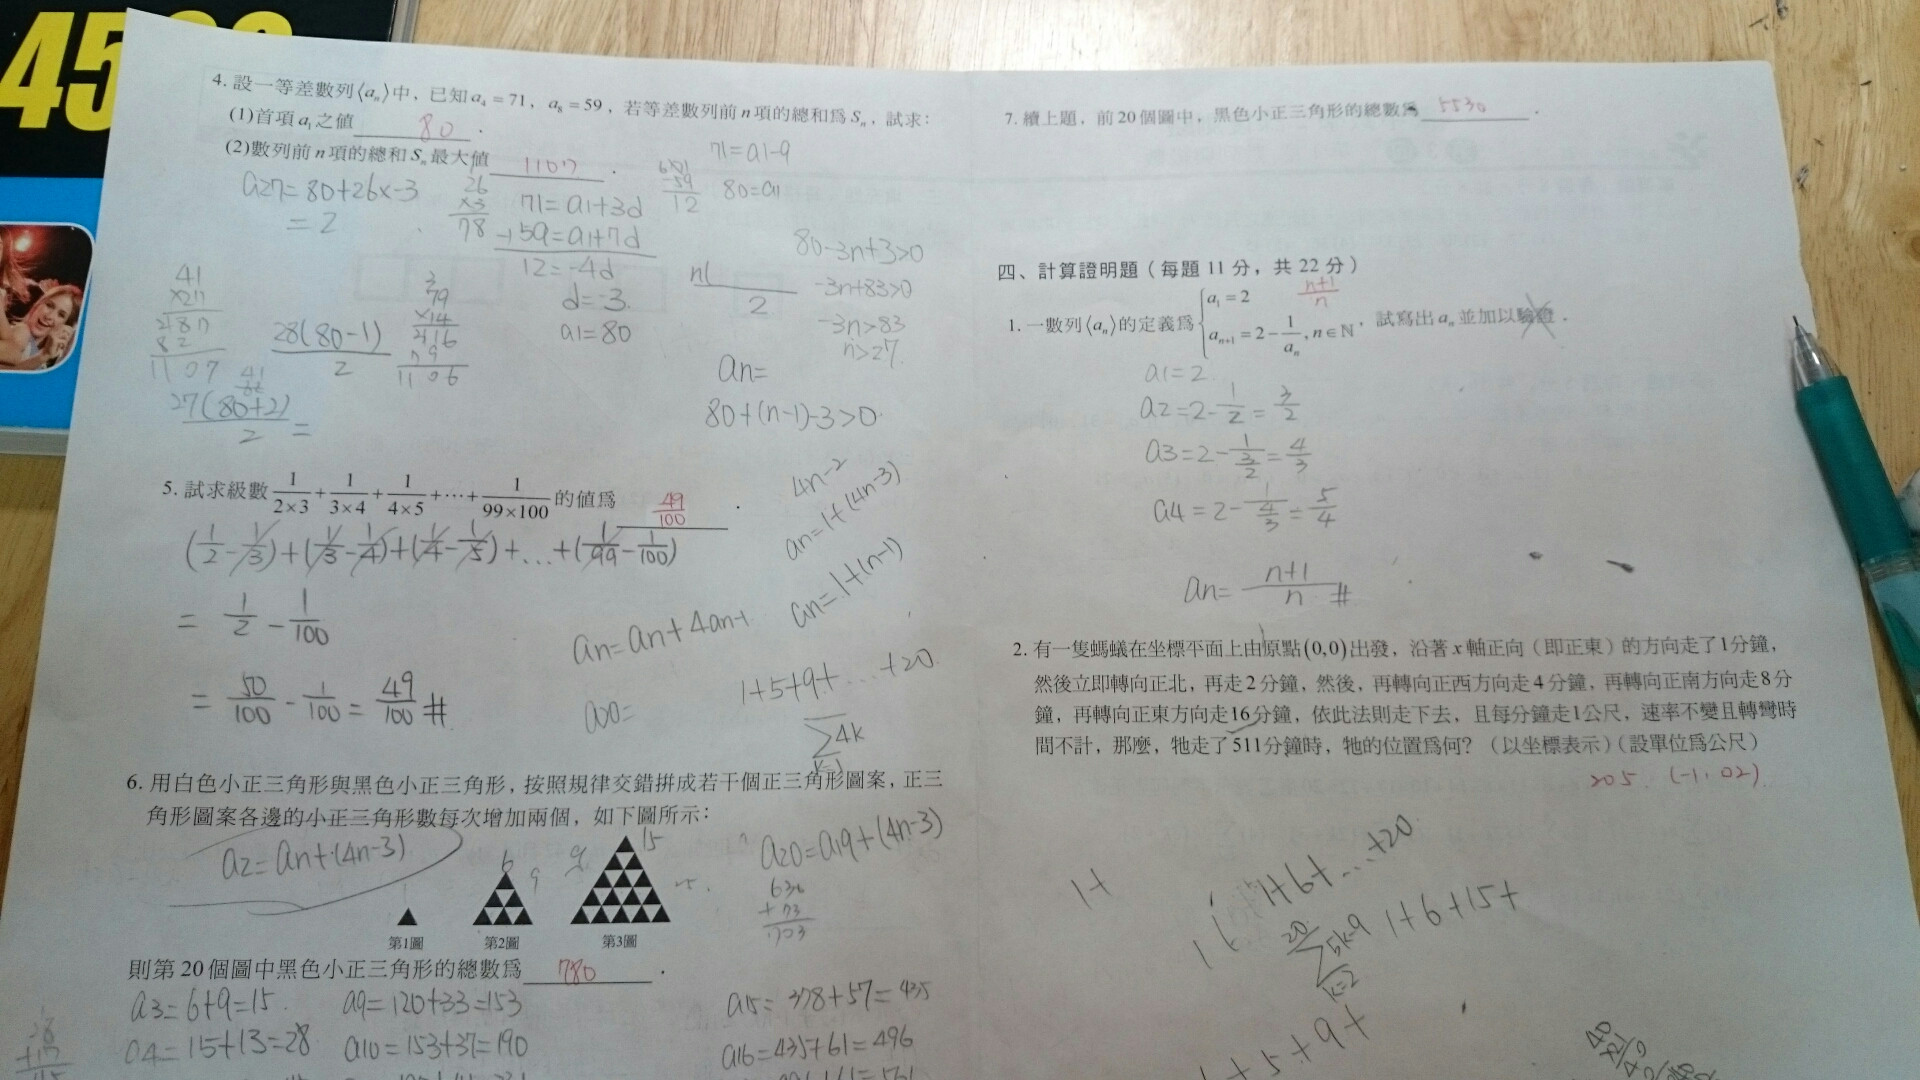 4. 設一等差數列⟨aₙ⟩中，已知a₄=71，a₈=59，若等差數列前n項的總和為Sₙ，試求：
(1)首項a₁之值 80 .
(2)數列前n項的總和Sₙ最大值 1107 .
71=a1-9
80=a1
a27=80+26x-3
=2
26
x3
78
71=a1+3d
-)59=a1+7d
12=-4d
d=-3.
a1=80
80-3n+3>0
-3n+83>0
-3n>83
n>27.
an=
80+(n-1)-3>0
n(
2
28(80-1)
2
79
x14
316
79
1106
41
x27
287
82
1107
27(80+2)
2 =
5. 試求級數 1/2×3 + 1/3×4 + 1/4×5 + ⋯ + 1/99×100 的值為 49/100 .
(1/2-1/3)+(1/3-1/4)+(1/4-1/5)+...+(1/99-1/100)
= 1/2 - 1/100
= 50/100 - 1/100 = 49/100 #
4n-2
an=1+(4n-3)
an=1+(n-1)
an=an+4an-1
a20=
1+5+9+...+20
Σ4k
k=1
6. 用白色小正三角形與黑色小正三角形，按照規律交錯拼成若干個正三角形圖案，正三
角形圖案各邊的小正三角形數每次增加兩個，如下圖所示：
a2=an+(4n-3)
1
6
9
15
第1圖
第2圖
第3圖
a20=a19+(4n-3)
630
+73
703
則第20個圖中黑色小正三角形的總數為 780 .
a3=6+9=15.
a9=120+33=153
a15=378+57=435
a4=15+13=28
a10=153+37=190
a16=435+61=496
7. 續上題，前20個圖中，黑色小正三角形的總數為 5530 .
四、計算證明題（每題11分，共22分）
1. 一數列⟨aₙ⟩的定義為 { a₁=2
aₙ₊₁=2-1/aₙ，n∈ℕ，試寫出aₙ並加以驗證.
n+1/n
a1=2
a2=2-1/2=3/2
a3=2-1/(3/2)=4/3
a4=2-1/(4/3)=5/4
an=n+1/n #
2. 有一隻螞蟻在坐標平面上由原點(0,0)出發，沿著x軸正向（即正東）的方向走了1分鐘，
然後立即轉向正北，再走2分鐘，然後，再轉向正西方向走4分鐘，再轉向正南方向走8分
鐘，再轉向正東方向走16分鐘，依此法則走下去，且每分鐘走1公尺，速率不變且轉彎時
間不計，那麼，牠走了511分鐘時，牠的位置為何？（以坐標表示）（設單位為公尺）
205. (-102).
1+
1+6+...+20
20
Σ5k-9
k=2
1+6+15+
+5+9+